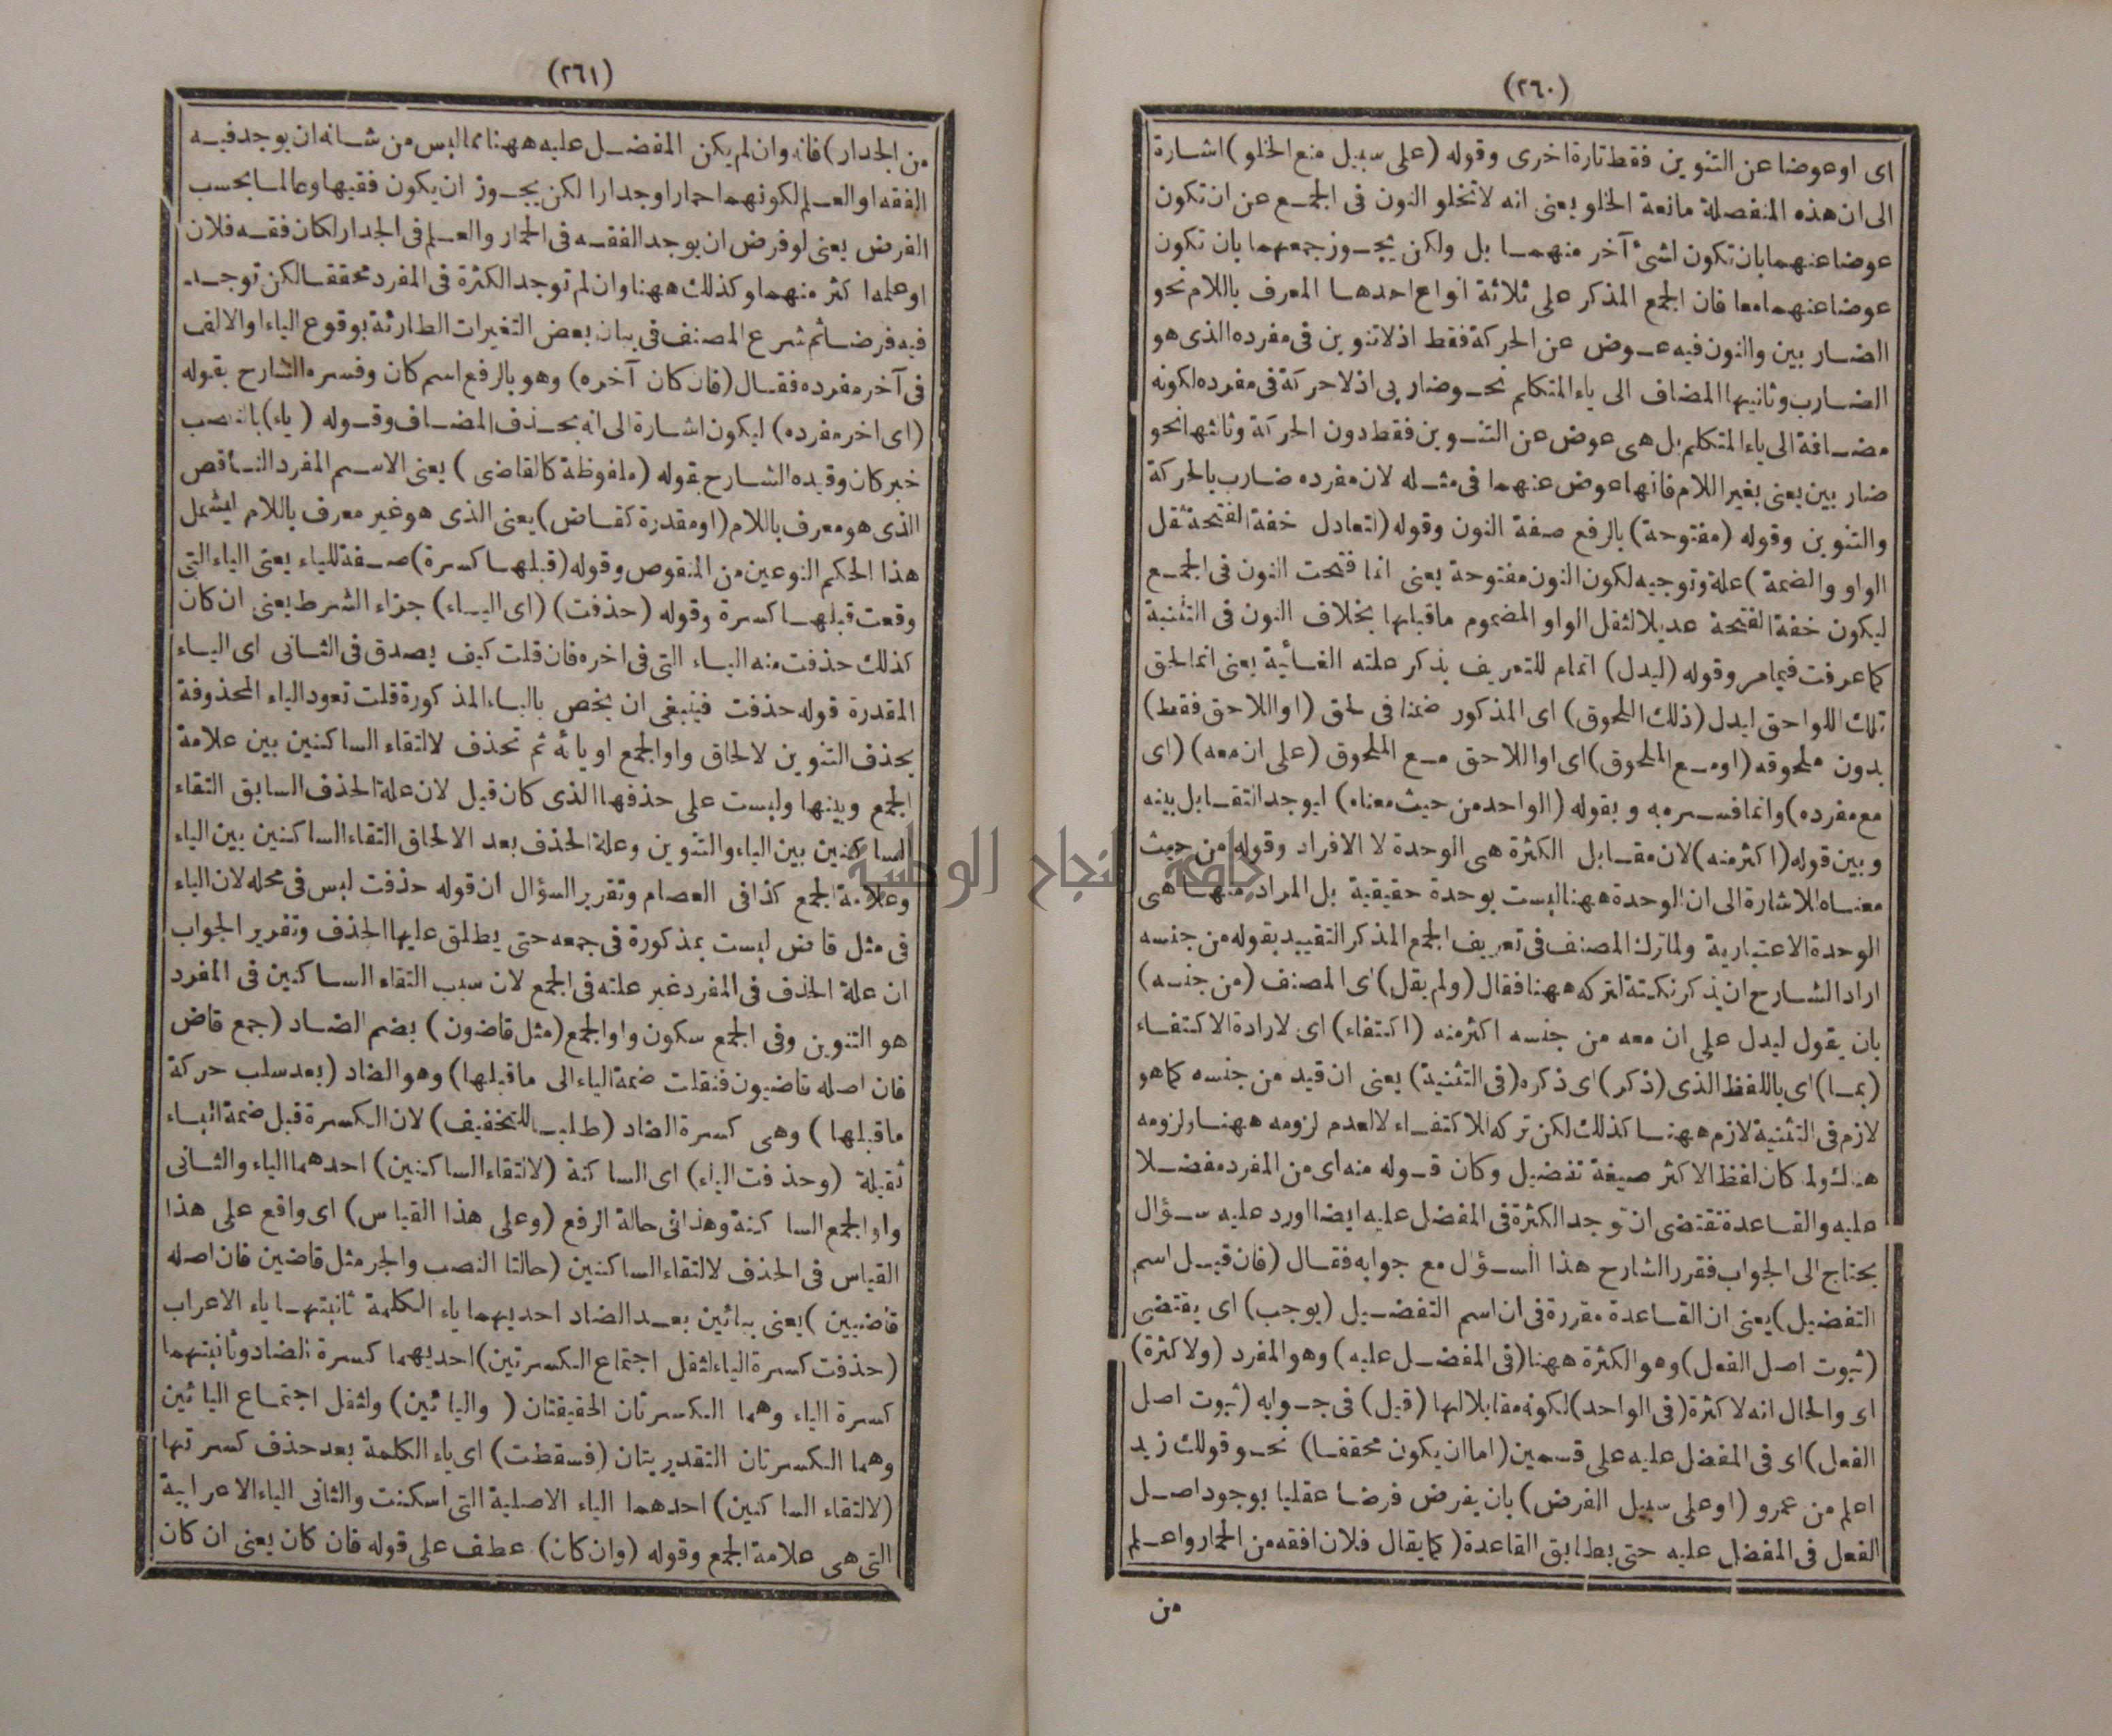 (٢٦٠)
اى او عوضا عن التنوين فقط تارة اخرى وقوله (على سبيل منع الخلو) اشارة
الى ان هذه المنفصلة مانعة الخلو يعنى انه لا تخلو النون فى الجمع عن ان تكون
عوضا عنهما بان تكون لشئ آخر منهما بل ولكن يجوز جمعهما بان تكون
عوضا عنهما معا فان الجمع المذكر على ثلاثة انواع احدها المعرف باللام نحو
الضاربين والنون فيه عوض عن الحركة فقط اذ لا تنوين فى مفرده الذى هو
الضارب وثانيها المضاف الى ياء المتكلم نحو ضاربى اذ لا حركة فى مفرده لكونه
مضافة الى ياء المتكلم بل هى عوض عن التنوين فقط دون الحركة وثالثها نحو
ضاربين يعنى بغير اللام فانها عوض عنهما فى مثله لان مفرده ضارب بالحركة
والتنوين وقوله (مفتوحة) بالرفع صفة النون وقوله (لتعادل خفة الفتحة ثقل
الواو والضمة) علة وتوجيه لكون النون مفتوحة يعنى انما فتحت النون فى الجمع
ليكون خفة الفتحة عديلا لثقل الواو المضموم ما قبلها بخلاف النون فى التثنية
كما عرفت فيما مر وقوله (ليدل) اتمام للتعريف بذكر علته الغائية يعنى انما لحق
تلك اللواحق ليدل (ذلك اللحوق) اى المذكور ضمنا فى لحق (او اللاحق فقط)
بدون ملحوقه (او مع الملحوق) اى او اللاحق مع الملحوق (على ان معه) (اى
مع مفرده) وانما فسره به وبقوله (الواحد من حيث معناه) ليوجد التقابل بينه
وبين قوله (اكثر منه) لان مقابل الكثرة هى الوحدة لا الافراد وقوله من حيث
معناه للاشارة الى ان الوحدة ههنا ليست بوحدة حقيقية بل المراد منها هى
الوحدة الاعتبارية ولما ترك المصنف فى تعريف الجمع المذكر التقييد بقوله من جنسه
اراد الشارح ان يذكر نكتة لتركه ههنا فقال (ولم يقل) اى المصنف (من جنسه)
بان يقول ليدل على ان معه من جنسه اكثر منه (اكتفاء) اى لارادة الاكتفاء
(بما) اى باللفظ الذى (ذكر) اى ذكره (فى التثنية) يعنى ان قيد من جنسه كما هو
لازم فى التثنية لازم ههنا كذلك لكن تركه للاكتفاء لا لعدم لزومه ههنا ولزومه
هناك ولما كان لفظ الاكثر صيغة تفضيل وكان قوله منه اى من المفرد مفضلا
عليه والقاعدة تقتضى ان توجد الكثرة فى المفضل عليه ايضا اورد عليه سؤال
يحتاج الى الجواب فقرر الشارح هذا السؤال مع جوابه فقال (فان قيل اسم
التفضيل) يعنى ان القاعدة مقررة فى ان اسم التفضيل (يوجب) اى يقتضى
(ثبوت اصل الفعل) وهو الكثرة ههنا (فى المفضل عليه) وهو المفرد (ولا كثرة)
اى والحال انه لا كثرة (فى الواحد) لكونه مقابلا لها (قيل) فى جوابه (ثبوت اصل
الفعل) اى فى المفضل عليه على قسمين (اما ان يكون محققا) نحو قولك زيد
اعلم من عمرو (او على سبيل الفرض) بان يفرض فرضا عقليا بوجود اصل
الفعل فى المفضل عليه حتى يطابق القاعدة (كما يقال فلان افقه من الحمار واعلم
من
(٢٦١)
من الجدار) فانه وان لم يكن المفضل عليه ههنا مما ليس من شانه ان يوجد فيه
الفقه او العلم لكونهما حمارا وجدارا لكن يجوز ان يكون فقيها وعالما بحسب
الفرض يعنى لو فرض ان يوجد الفقه فى الحمار والعلم فى الجدار لكان فقه فلان
او علمه اكثر منهما وكذلك ههنا وان لم توجد الكثرة فى المفرد محققا لكن توجد
فيه فرضا ثم شرع المصنف فى بيان بعض التغيرات الطارئة بوقوع الياء او الالف
فى آخر مفرده فقال (فان كان آخره) وهو بالرفع اسم كان وفسره الشارح بقوله
(اى اخر مفرده) ليكون اشارة الى انه بحذف المضاف وقوله (ياء) بالنصب
خبر كان وقيده الشارح بقوله (ملفوظة كالقاضى) يعنى الاسم المفرد الناقص
الذى هو معرف باللام (او مقدرة كقاض) يعنى الذى هو غير معرف باللام ليشمل
هذا الحكم النوعين من المنقوص وقوله (قبلها كسرة) صفة للياء يعنى الياء التى
وقعت قبلها كسرة وقوله (حذفت) (اى الياء) جزاء الشرط يعنى ان كان
كذلك حذفت منه الياء التى فى اخره فان قلت كيف يصدق فى الثانى اى الياء
المقدرة قوله حذفت فينبغى ان يخص بالياء المذكورة قلت تعود الياء المحذوفة
بحذف التنوين لالحاق واو الجمع او يائه ثم تحذف لالتقاء الساكنين بين علامة
الجمع وبينها وليست على حذفها الذى كان قيل لان علة الحذف السابق التقاء
الساكنين بين الياء والتنوين وعلة الحذف بعد الالحاق التقاء الساكنين بين الياء
وعلامة الجمع كذا فى العصام وتقرير السؤال ان قوله حذفت ليس فى محله لان الياء
فى مثل قاض ليست بمذكورة فى جمعه حتى يطلق عليها الحذف وتقرير الجواب
ان علة الحذف فى المفرد غير علته فى الجمع لان سبب التقاء الساكنين فى المفرد
هو التنوين وفى الجمع سكون واو الجمع (مثل قاضون) بضم الضاد (جمع قاض
فان اصله قاضيون فنقلت ضمة الياء الى ما قبلها) وهو الضاد (بعد سلب حركة
ما قبلها) وهى كسرة الضاد (طلبا للتخفيف) لان الكسرة قبل ضمة الياء
ثقيلة (وحذفت الياء) اى الساكنة (لالتقاء الساكنين) احدهما الياء والثانى
واو الجمع الساكنة وهذا فى حالة الرفع (وعلى هذا القياس) اى واقع على هذا
القياس فى الحذف لالتقاء الساكنين (حالتا النصب والجر مثل قاضين فان اصله
قاضيين) يعنى بيائين بعد الضاد احديهما ياء الكلمة ثانيتهما ياء الاعراب
(حذفت كسرة الياء لثقل اجتماع الكسرتين) احديهما كسرة الضاد وثانيتهما
كسرة الياء وهما الكسرتان الحقيقتان (واليائين) ولثقل اجتماع اليائين
وهما الكسرتان التقديريتان (فسقطت) اى ياء الكلمة بعد حذف كسرتها
(لالتقاء الساكنين) احدهما الياء الاصلية التى اسكنت والثانى الياء الاعرابية
التى هى علامة الجمع وقوله (وان كان) عطف على قوله فان كان يعنى ان كان
جامعة النجاح الوطنية